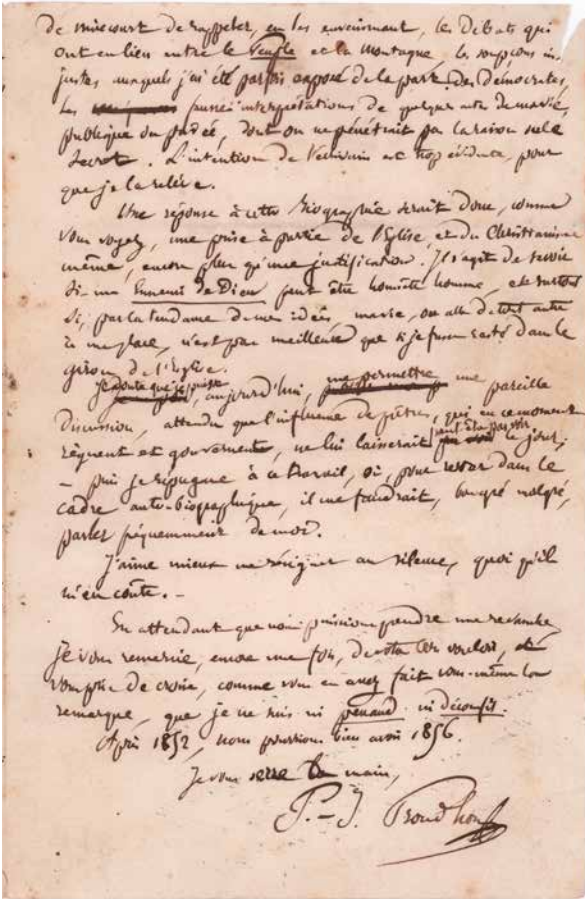 de Mirecourt de rappeler, en les envenimant, les débats qui
ont eu lieu entre le Peuple et la Montagne, les soupçons in-
justes auxquels j'ai été parfois exposé de la part des démocrates,
les fausses interprétations de quelques actes de ma vie,
publique ou privée, dont on ne pénétrait pas la raison ou le
secret. L'intention de l'écrivain est trop évidente, pour
que je la relève.
Une réponse à cette Biographie serait donc, comme
vous voyez, une prise à partie de l'Église, et du Christianisme
même, encore plus qu'une justification. Il s'agit de savoir
si un Ennemi de Dieu peut être honnête homme, et surtout
si, par la tendance de mes idées, ma vie, ou celle de tout autre
à ma place, n'est pas meilleure que si je fusse resté dans le
giron de l'Église.
Je doute que je puisse, aujourd'hui, me permettre une pareille
discussion, attendu que l'influence des prêtres, qui en ce moment
règnent et gouvernent, ne lui laisserait peut-être pas voir le jour;
— puis je répugne à ce travail, où, pour rester dans le
cadre auto-biographique, il me faudrait, bon gré malgré,
parler fréquemment de moi.
J'aime mieux me résigner au silence, quoi qu'il
m'en coûte. —
En attendant que nous puissions prendre une revanche,
je vous remercie, encore une fois, de votre bon vouloir, et
vous prie de croire, comme vous en avez fait vous-même la
remarque, que je ne suis ni penaud ni déconfit.
Après 1852, nous pourrions bien avoir 1856.
Je vous serre la main,
P.-J. Proudhon